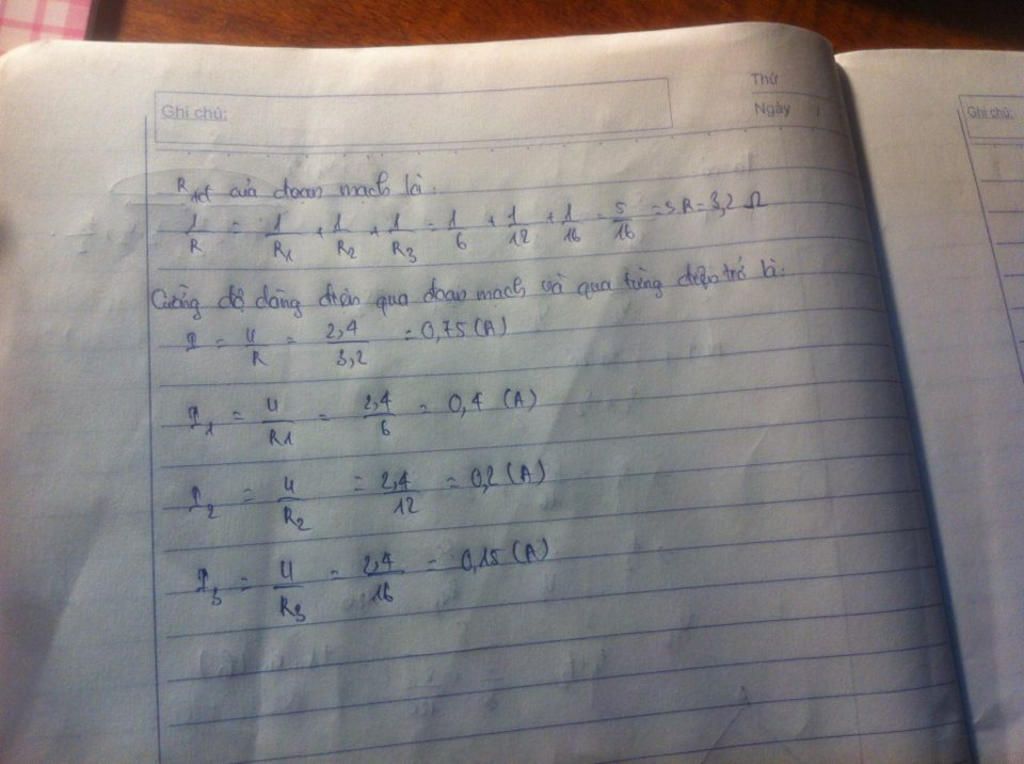 Thứ
Ghi chú:
Ngày /
Ghi chú:
Rtđ của đoạn mạch là:
1/R = 1/R1 + 1/R2 + 1/R3 = 1/6 + 1/12 + 1/16 = 5/16 => R = 3,2 Ω
Cường độ dòng điện qua đoạn mạch và qua từng điện trở là:
I = U/R = 2,4/3,2 = 0,75 (A)
I1 = U/R1 = 2,4/6 = 0,4 (A)
I2 = U/R2 = 2,4/12 = 0,2 (A)
I3 = U/R3 = 2,4/16 = 0,15 (A)